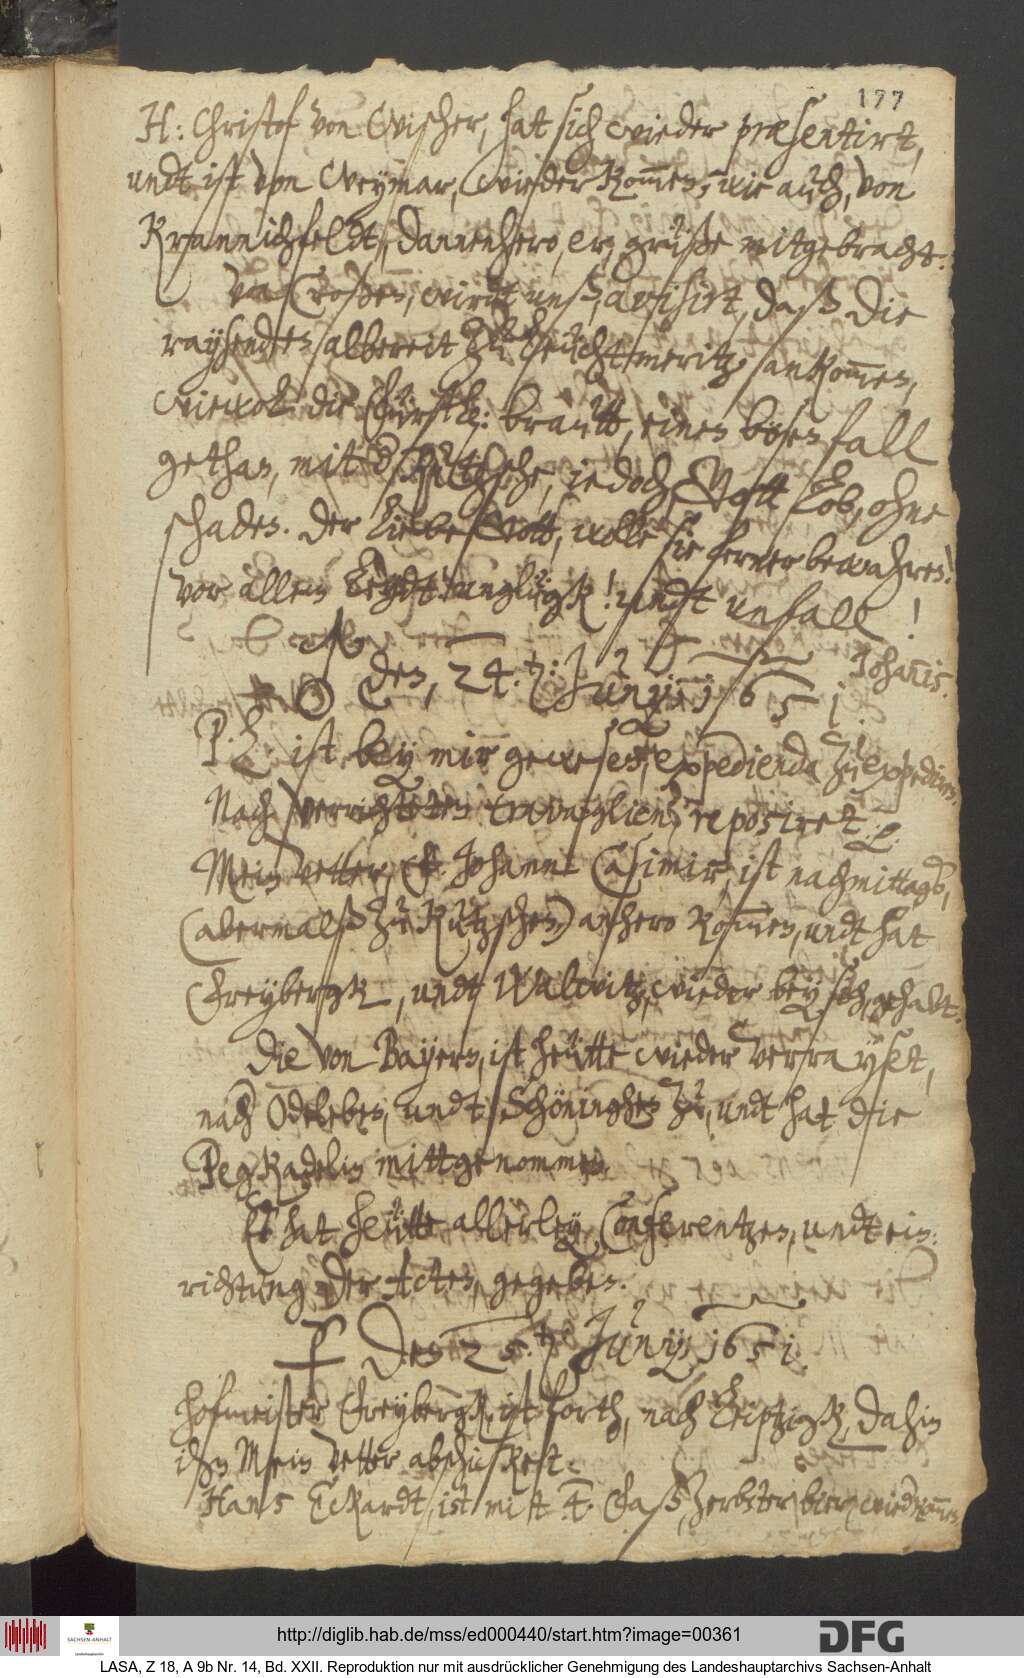 177
H: Christof von Wischer, hat sich wieder præsentirt,
undt ist von Weymar, wieder kom̅en, wie auch, von
Krannichfeldt, dannenhero, er, grüße mitgebracht.
Von Croßen, wirdt unß, avisirt, daß die
raysenden albereit zu
wiewol die Fürstl: brautt, einen bösen fall
gethan, mit der kutzsche, iedoch, Gott Lob, ohne
schaden. Der Liebe Gott, wolle sie ferner bewahren!
vor allem Leydt! unglügk! undt unfall!
den, 24. Junij: 1651.
Johan̅is.
P. L. ist bey mir gewesen, expedienda zu expediren.
Nach verrichteten travaglien, reposiret.
Mein Vetter, F: Johann Casimir, ist nachmittags,
(abermalß zu Kutzschen) anhero kom̅en, undt hat
Freybergk, undt Walwitz, wieder bey sich, gehabt.
Die von Bayern, ist heütte wieder verrayset,
nach Odeleben, undt Schöninghen zu, undt hat die
mittgenommen.
Es hat heütte allerley, Conferentzen, undt ein:
richtung der Acten, gegeben.
Den 25. Junij: 1651.
Hofmeister Freybergk, ist forth, nach Leiptzigk, dahin
ihn Mein Vetter abschickett.
Hans Eckardt, ist mit 4. Faß, Zerbster bier, wiederkom̅en,
http://diglib.hab.de/mss/ed000440/start.htm?image=00361
SACHSEN-ANHALT
DFG
LASA, Z 18, A 9b Nr. 14, Bd. XXII. Reproduktion nur mit ausdrücklicher Genehmigung des Landeshauptarchivs Sachsen-Anhalt